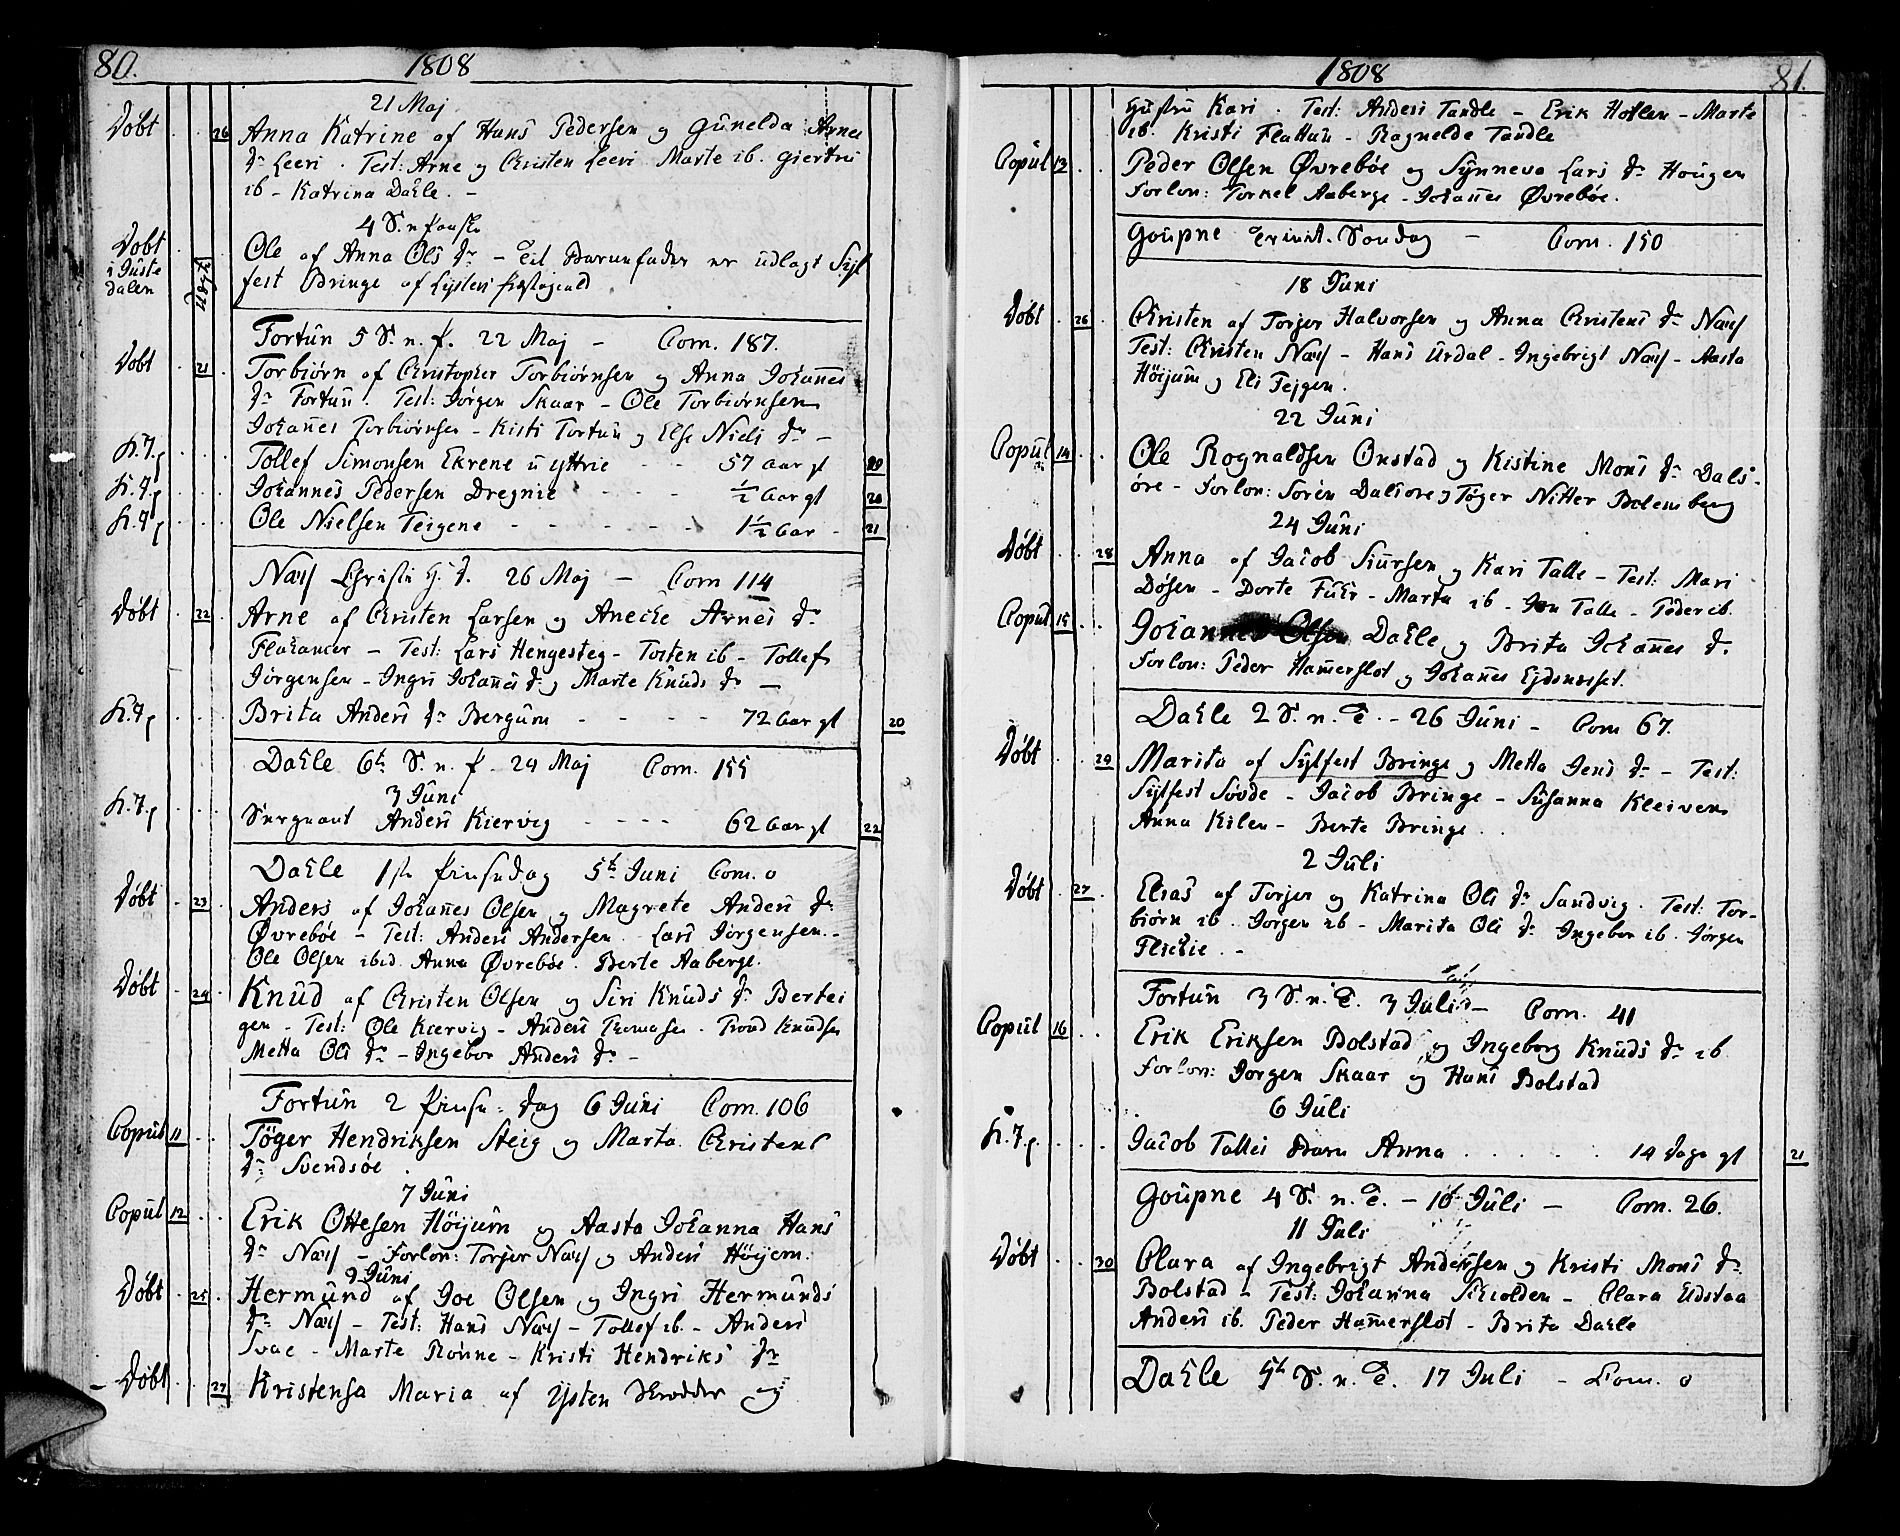 80. 1808
21 Maj
Døbt 26 Anna Katrine af Hans Pedersen og Gunelda Arnes
Dr Leeri. Test: Arne og Christen Leeri. Marte ib. Giertru
ib - Katrina Dahle. -
4 S. n Paaske
Døbt i Juste dalen Ole af Anna Ols Dr - Til Barnefader er udlagt Syl
fest Bringe af Lysters Præstegield
Fortun 5 S. n. P. 22 Maj - Com. 187.
Døbt 21 Torbiørn af Christopher Torbiørnsen og Anna Johannes
Dr Fortun. Test: Jørgen Skaar - Ole Torbiørnsen
Johannes Torbiørnsen - Kisti Fortun og Else Niels Dr -
Tollef Simonsen Ekrene u yttrie - - 57 aar gl
Johannes Pedersen Dregnie - - - - ½ aar gl 20
Ole Nielsen Teigene - - - - - 1½ aar - 21
Næs Christi H. F. 26 Maj - Com 114
Døbt 22 Arne af Christen Larsen og Aneche Arnes Dr
Flahamer - Test: Lars Hengesteg - Tosten ib - Tollef
Jørgensen - Ingri Johannes Dr og Marte Knuds Dr -
Brita Anders Dr Bergum - - - - 72 aar gl 20
Dahle 6te S. n. P. 29 Maj Com. 155
3 Juni
Sergeant Anders Kiervig - - - - 62 aar gl 22
Dahle 1ste Pinsedag 5te Juni Com. 0
Døbt 23 Anders af Johannes Olsen og Magrete Anders Dr
Øvrebøe - Test: Anders Andersen - Lars Jørgensen -
Ole Olsen ibid. Anna Øvrebøe. Berte Aaberge.
Døbt 24 Knud af Christen Olsen og Siri Knuds Dr Bertei
gen - Test: Ole Kiervig - Anders Thomasen - Trond Knudsen
Metta Ols Dr - Ingebor Anders Dr -
Fortun 2 Pinse: dag 6 Juni Com. 106
Copul 11 Tøger Hendriksen Steig og Marta Christens
Dr Svendsøe.
7 Juni
Copul 12 Erik Ottesen Høijum og Aasta Johanna Hans
Dr Næs - Forlov: Torger Næs og Anders Høijem.
9 Juni
Døbt 25 Hermund af Joe Olsen og Ingri Hermunds
Dr Næs - Test: Hans Næs - Tollef ib - Anders
Svae - Marte Rønne - Kristi Hendriks Dr
Døbt 27 Kristensa Maria af Ysten og
1808 81.
Hustru Kari. Test: Anders Tandle - Erik Hotlen - Marte
ib. Kristi Flattun - Ragnelde Tandle
Copul 13 Peder Olsen Øvrebøe og Synneva Lars Dr Hougen
Forlov: Torkel Aaberge - Johannes Øvrebøe.
Goupne Trinit. Søndag - Com. 150
18 Juni
Døbt 26 Christen af Torger Halvorsen og Anna Christens Dr Næs
Test: Christen Næs - Hans Urdal - Ingebrigt Næs - Aasta
Høijum og Eli Fejgen.
22 Juni
Copul 14 Ole Rognaldsen Onstad og Kistine Mons Dr Dals-
øre - Forlov: Søren Dalsøre og Tøger Nitter Bolensberg
24 Juni
Døbt 28 Anna af Jacob Siursen og Kari Talle - Test: Mari
Døsen - Dorte Fuhr - Marta ib - Jon Talle - Peder ib.
Copul 15 Johannes Olsen Dahle og Brita Johannes Dr
Forlov: Peder Hamerslot og Johannes Ejdsnæset.
Dahle 2 S. n. T. - 26 Juni - Com 67.
Døbt 29 Marita af Sylfest Bringe og Metta Jens Dr - Test:
Sylfest Søvde - Jacob Bringe - Susanna Kleiven
Anna Kilen - Berte Bringe.
2 Juli
Døbt 27 Elias af Torger og Katrina Ols Dr Sandvig. Test: Tor-
biørn ib. Jorgen ib - Marita Ols Dr Ingebor ib. Jørgen
Flichie. -
Fortun 3 S. n. T. 3 Juli - Com. 41
Copul 16 Erik Eriksen Bolstad og Ingeborg Knuds Dr ib
Forlov: Jorgen Skaar og Hans Bolstad
6 Juli
Jacob Talles Barn Anna . . . . . 14 Dage gl 21
Goupne 4 S. n. T. - 10 Juli - Com. 26.
11 Juli
Døbt 30 Clara af Ingebrigt Andersen og Kristi Mons Dr
Bolstad - Test: Johanna Schiolden - Clara Udstaa
Anders ib. Peder Hamerslot - Brita Dahle
Dahle 5te S. n. T. 17 Juli - Com. 0